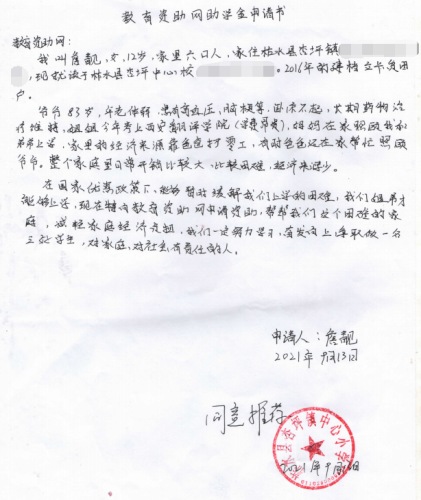 教育资助网助学金申请书
教育资助网：
我叫詹靓，女，12岁，家里六口人，家住柞水县杏坪镇
，现就读于柞水县杏坪中心校 。2016年的建档立卡贫困
户。
爷爷83岁，年老体弱，患有高血压，脑梗等，卧床不起，长期药物治
疗维持，姐姐今年考上西安翻译学院（学费昂贵），妈妈在家照顾我和
弟弟上学，家里的经济来源靠爸爸打零工，有时爸爸还在家帮忙照顾
爷爷。整个家庭里日常开销比较大，比较困难，经济来源少。
在国家优惠政策下，能够暂时缓解我们上学的困难，我们姐弟才
能够上学，现在特向教育资助网申请资助，帮帮我们这个困难的家
庭，减轻家庭经济负担，我们一定努力学习，奋发向上争取做一名
三好学生，对家庭，对社会有责任的人。
申请人：詹靓
2021年9月13日
同意推荐
柞水县杏坪镇中心小学
2021年9月